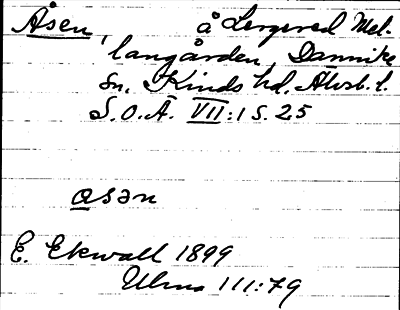 Åsen, å Lergered Mel-
langården, Dannike
sn. Kinds hd, Älvsb. l.
S.O.Ä. VII:1 S. 25
åsən
E. Ekwall 1899
Ulma 111:79